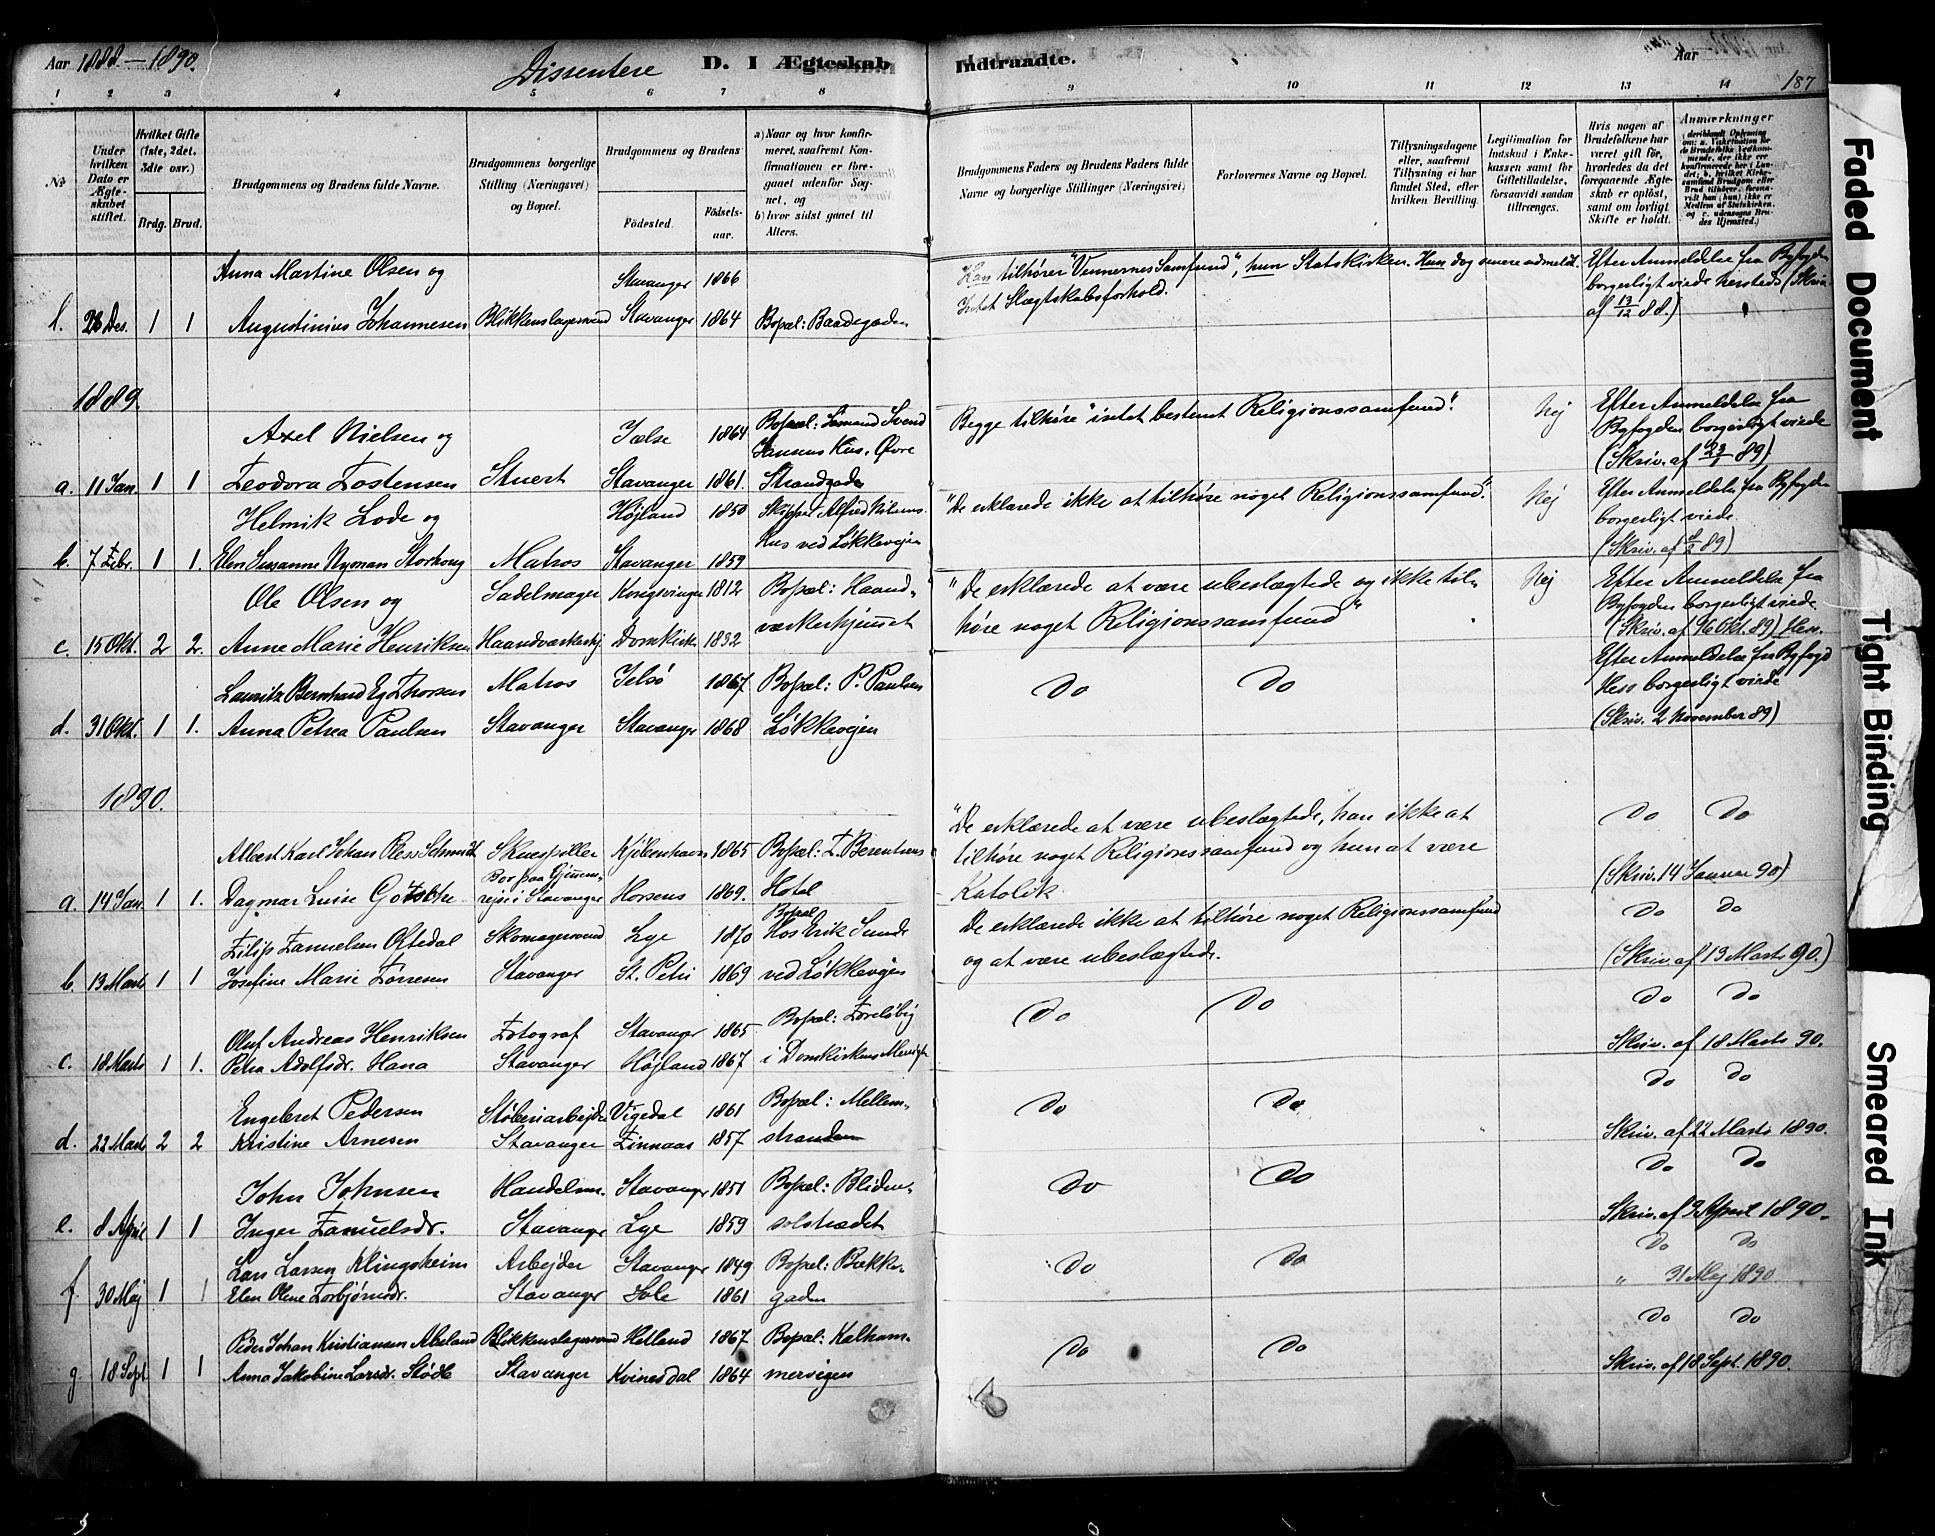 Aar 1888.—1890. Dissentere D. I Ægteskab Indtraadte. Aar 187
1 2 3 4 5 6 7 8 9 10 11 12 13 14
No
Under hvilken Dato er Ægteskabet stiftet.
Hvilket Gifte (1ste, 2det, 3die osv.)
Brdg. Brud.
Brudgommens og Brudens fulde Navne.
Brudgommens borgerlige Stilling (Næringsvei) og Bopæl.
Brudgommens og Brudens
Fødested. Fødselsaar.
a) Naar og hvor konfirmeret, saafremt Konfirmationen er foregaaet udenfor Sognet, og
b) hvor sidst gaaet til Alters.
Brudgommens Faders og Brudens Faders fulde Navne og borgerlige Stillinger (Næringsvei)
Forlovernes Navne og Bopæl.
Tillysningsdagene eller, saafremt Tillysning ei har fundet Sted, efter hvilken Bevilling.
Legitimation for Indskud i Enkekassen samt for Giftetilladelse, forsaavidt saadan tiltrænges.
Hvis nogen af Brudefolkene har været gift før, hvorledes da det foregaaende Ægteskab er opløst, samt om lovligt Skifte er holdt.
Anmærkninger
Anna Martine Olsen og Stavanger 1866 Han tilhører "Vennernes Samfund", hun Statskirken. Hun dog senere udmeldt. Efter Anmeldelse fra Byfogden
Intet Slægtskabsforhold. borgerligt viede hersteds (Skriv.
l. 28 Des. 1 1 Augustinius Johannesen Blikkenslagersvend Stavanger 1864 Bopæl: Baadegaden af 13/12 88.)
1889.
Axel Nielsen og Jælse 1864 Bopæl: Lømand Svend Begge tilhøre "intet bestemt Religionssamfund". Nej Efter Anmeldelse fra
Jansens Hus, Øvre Byfogden borgerligt viede
a. 11 Jan. 1 1 Teodora Tostensen Stuert Stavanger 1861. Strandgade (Skriv. af 89)
Helmik Lode og Højland 1850 Skipper Alfred "De erklærede ikke at tilhøre noget Religionssamfund". Nej Efter Anmeldelse fra Byfogden
Hus ved Løkkevejen borgerligt viede.
b. 7 Febr. 1 1. Elen Susanne Nyman Storhoug Matros Stavanger 1859 (Skriv. af 89)
Ole Olsen og Sadelmager Kongsvinger 1812 Bopæl: Haand- "De erklærede at være ubeslægtede og ikke til- Nej Efter Anmeldelse fra
Byfogden borgerligt viede
c. 15 Okt. 2 2. Anne Marie Henriksen Haandværkerhj. Domkirk. 1832 værkerhjemmet høre noget Religionssamfund" (Skriv. af 16 Okt. 89)
Lauritz Bernhard Eg Thorsen Matros Jelsø 1867 Bopæl: P. Paulsen Do Do Efter Anmeldelse fra Byfogd
borgerligt viede
d. 31 Okt. 1 1. Anna Petrea Paulsen Stavanger Stavanger 1868 Løkkevejen (Skriv. 2 November 89)
1890.
"De erklærede at være ubeslægtede, han ikke at Do Do
Albert Karl Johan Pless Schmidt Skuespiller Kjøbenhavn 1865 Bopæl: T. Berentsens tilhøre noget Religionssamfund og hun at være
Bor paa Gjennem-
a. 14 Jan. 1 1. Dagmar Luise Gotsche rejse i Stavanger Horsens 1869. Hotel Katolik (Skriv. 14 Januar 90)
Filip Tanuelsen Oftedal Skomagersvend Lye 1870 Bopæl Hos Erik Sunde De erklærede ikke at tilhøre noget Religionssamfund Do Do
b. 13 Marts 1 1 Josefine Marie Tørresen Stavanger St. Petri 1869 ved Løkkevejen og at være ubeslægtede. (Skriv. af 13 Marts 90.)
Oluf Andreas Henriksen Fotograf Stavanger 1865 Bopæl: Foreløbig Do Do Do Do
c. 18 Marts 1 1. Petra Adolfsdr. Hana Stavanger Højland 1867 i Domkirkens Menigh Skriv. af 18 Marts 90.
Engebret Pedersen Støberiarbejder Vigedal 1861 Bopæl: Mellem- Do Do Do Do
d. 22 Marts 2 2 Kristine Arnesen Stavanger Finnaas 1857 stranden Skriv. af 22 Marts 1890.
John Johnsen Handelsm. Stavanger 1851 Bopæl: Bliden- Do Do Do Do
e. 8 April 1 1 Inger Tanuelsdr. Stavanger Lye 1859 solstrædet Skriv. af 9 April 1890.
Lars Larsen Klingsheim Arbejder Stavanger 1849 Bopæl: Bække- Do Do Do Do
f. 30 Mej 1 1 Elen Olene Torbjørnsdr. Stavanger Sole 1861 gaden " 31 Mej 1890
Peder Johan Kristiansen Abeland Blikkenslagersvend Hetland 1867. Bopæl: Kalham- Do Do Do Do
g 18 Sept. 1 1 Anna Jakobine Larsdr. Stødle Stavanger Kvinesdal 1864 mervigen Skriv. af 18 Sept. 1890.
Faded Document
Tight Binding
Smeared Ink